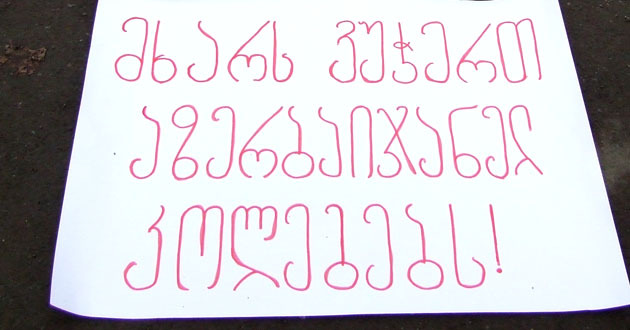 მხარს ვუჭერთ
აზერბაიჯანელ
კოლეგებს!